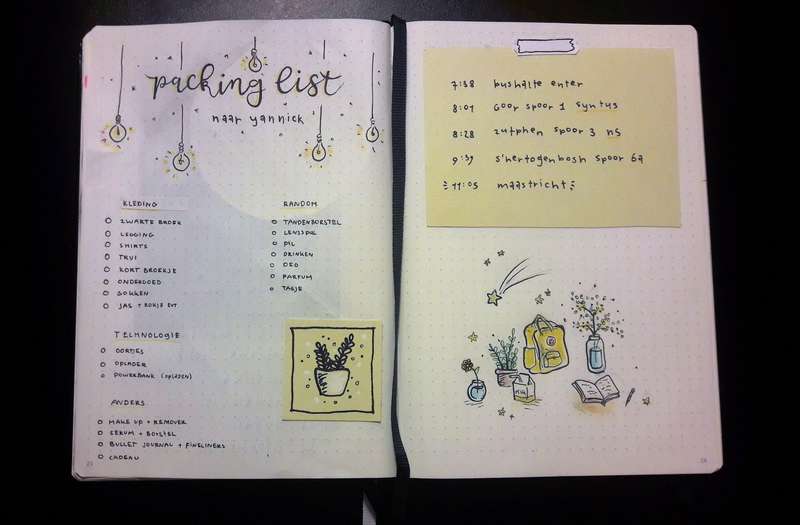 packing list
naar yannick
KLEDING
ZWARTE BROEK
LEGGING
SHIRTS
TRUI
KORT BROEKJE
ONDERGOED
SOKKEN
JAS + ROKJE EVT
TECHNOLOGIE
OORTJES
OPLADER
POWERBANK (OPLADEN)
ANDERS
MAKE UP + REMOVER
SERUM + BORSTEL
BULLET JOURNAL + FINELINERS
CADEAU
RANDOM
TANDENBORSTEL
LENSSPUL
PIL
DRINKEN
DEO
PARFUM
TASJE
7:38 bushalte enter
8:01 Goor spoor 1 syntus
8:28 zutphen spoor 3 NS
9:39 s'hertogenbosh spoor 6a
11:05 maastricht
MILK